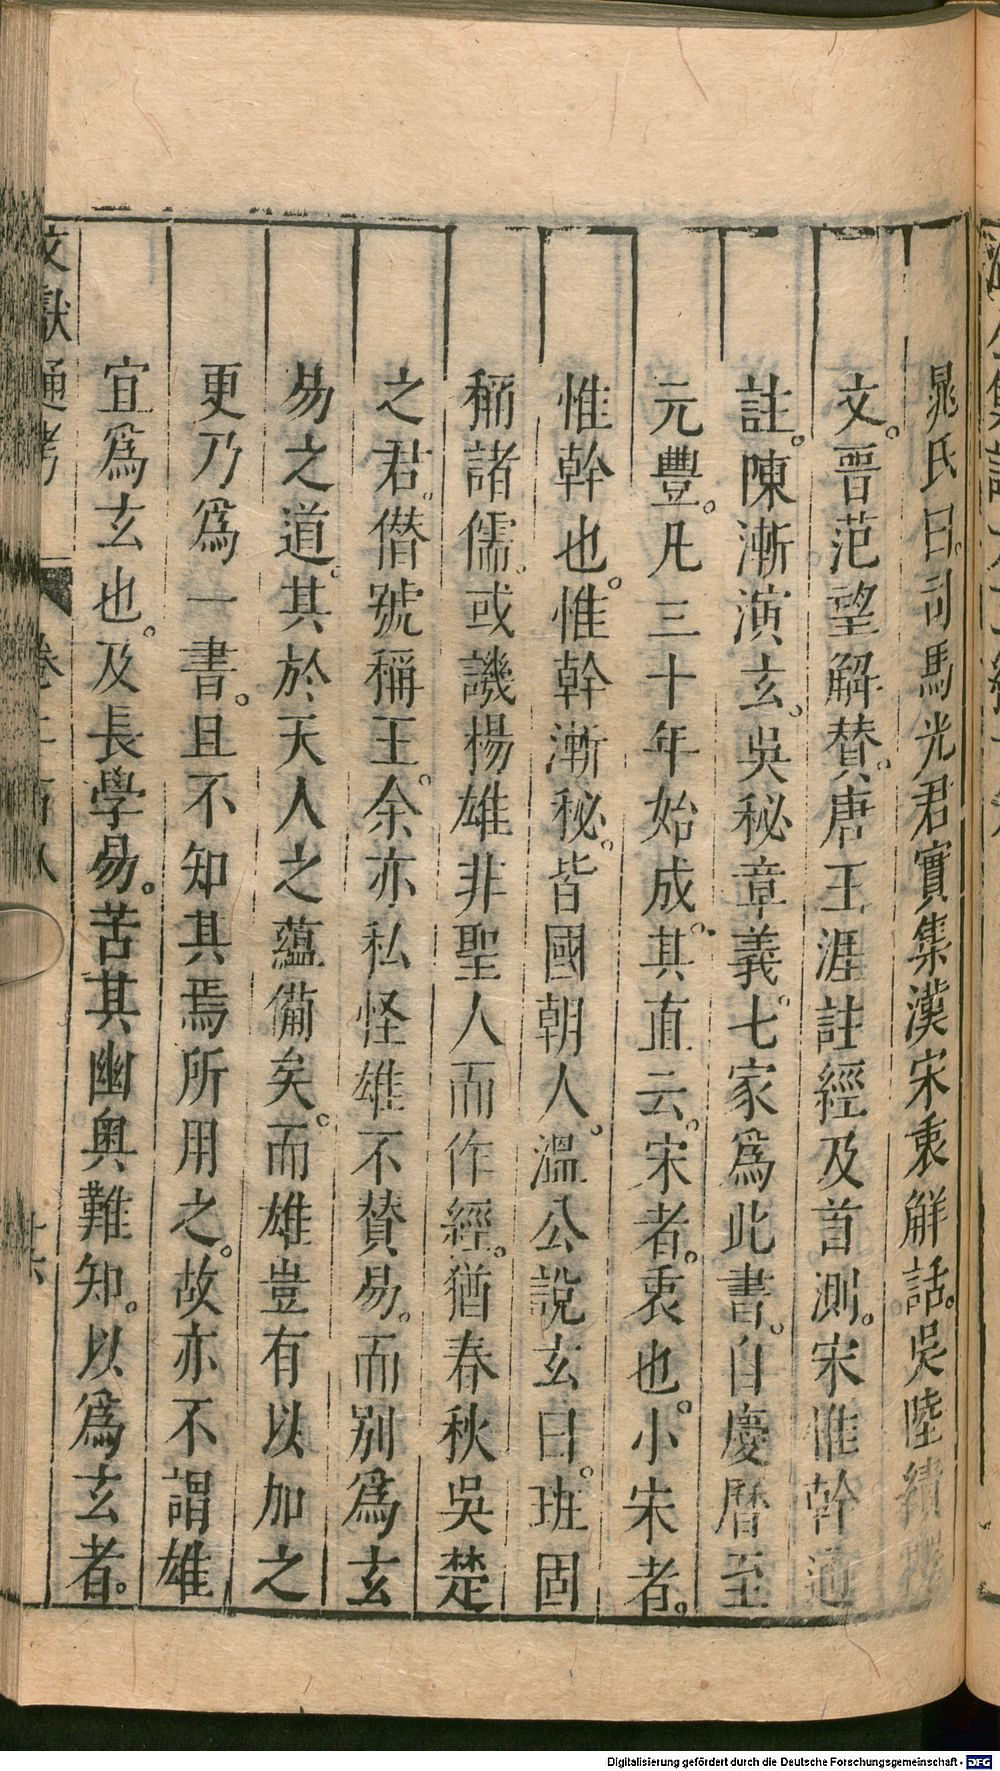 晁氏曰。司馬光君實集漢宋衷解話。吳陸績釋
文。晉范望解贊。唐王涯註經及首測。宋惟幹通
註。陳漸演玄。吳秘章義。七家爲此書。自慶曆至
元豐。凡三十年始成。其直云。宋者。衷也。小宋者。
惟幹也。惟幹漸秘。皆國朝人。溫公說玄曰。班固
稱諸儒。或譏楊雄非聖人而作經。猶春秋吳楚
之君。僭號稱王。余亦私怪雄不贊易。而別爲玄
易之道。其於天人之蘊備矣。而雄豈有以加之
更乃爲一書。且不知其焉所用之。故亦不謂雄
宜爲玄也。及長學易。苦其幽奧難知。以爲玄者。
文獻通考 卷二百八
Digitalisierung gefördert durch die Deutsche Forschungsgemeinschaft - DFG